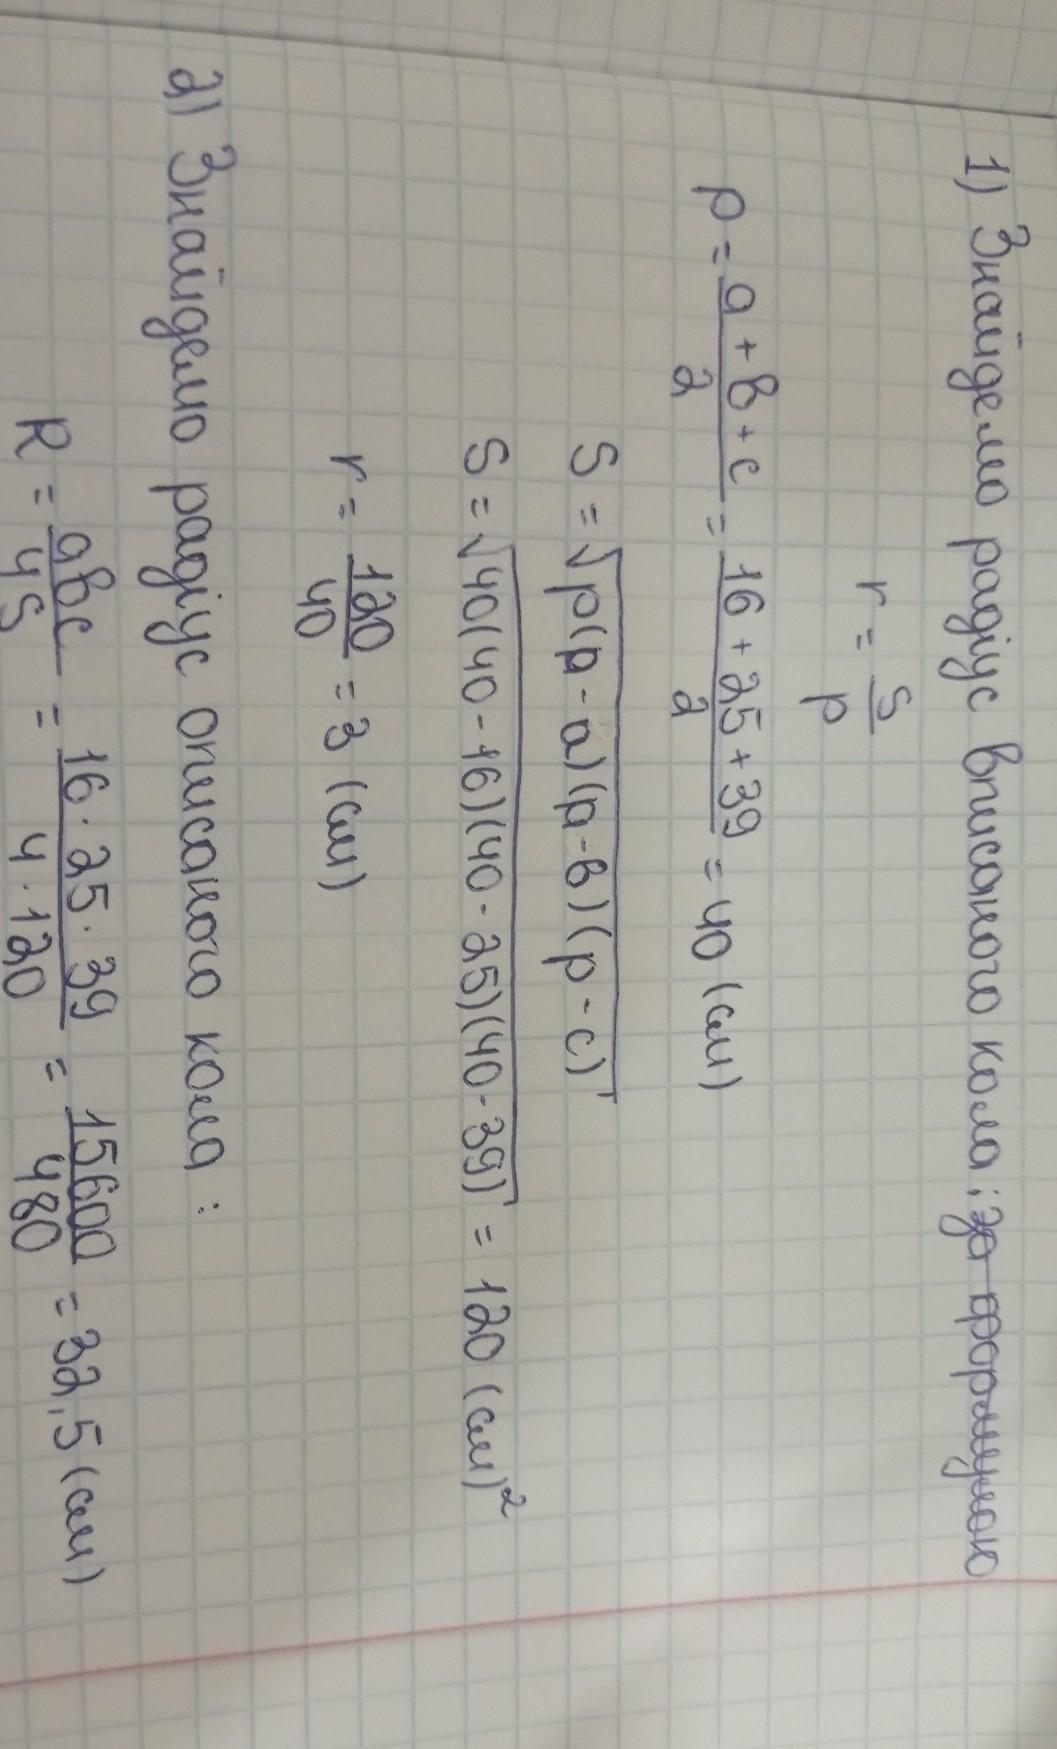 1) Знайдемо радіус вписаного кола ; за формулою
r = S/p
p = a + b + c/2 = 16 + 25 + 39/2 = 40 (см)
S = √p(p - a)(p - b)(p - c)
S = √40(40 - 16)(40 - 25)(40 - 39) = 120 (см)²
r = 120/40 = 3 (см)
2) Знайдемо радіус описаного кола :
R = abc/4S = 16 · 25 · 39/4 · 120 = 15600/480 = 32,5 (см)